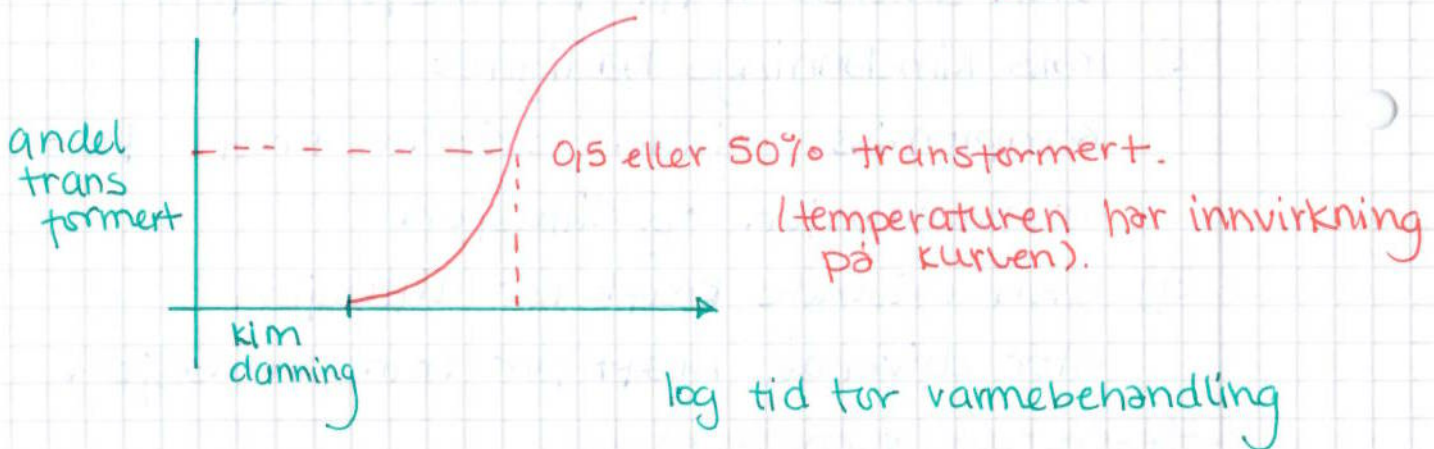 andel
trans
formert
0,5 eller 50% transformert.
(temperaturen har innvirkning
på kurven).
kim
danning
log tid for varmebehandling